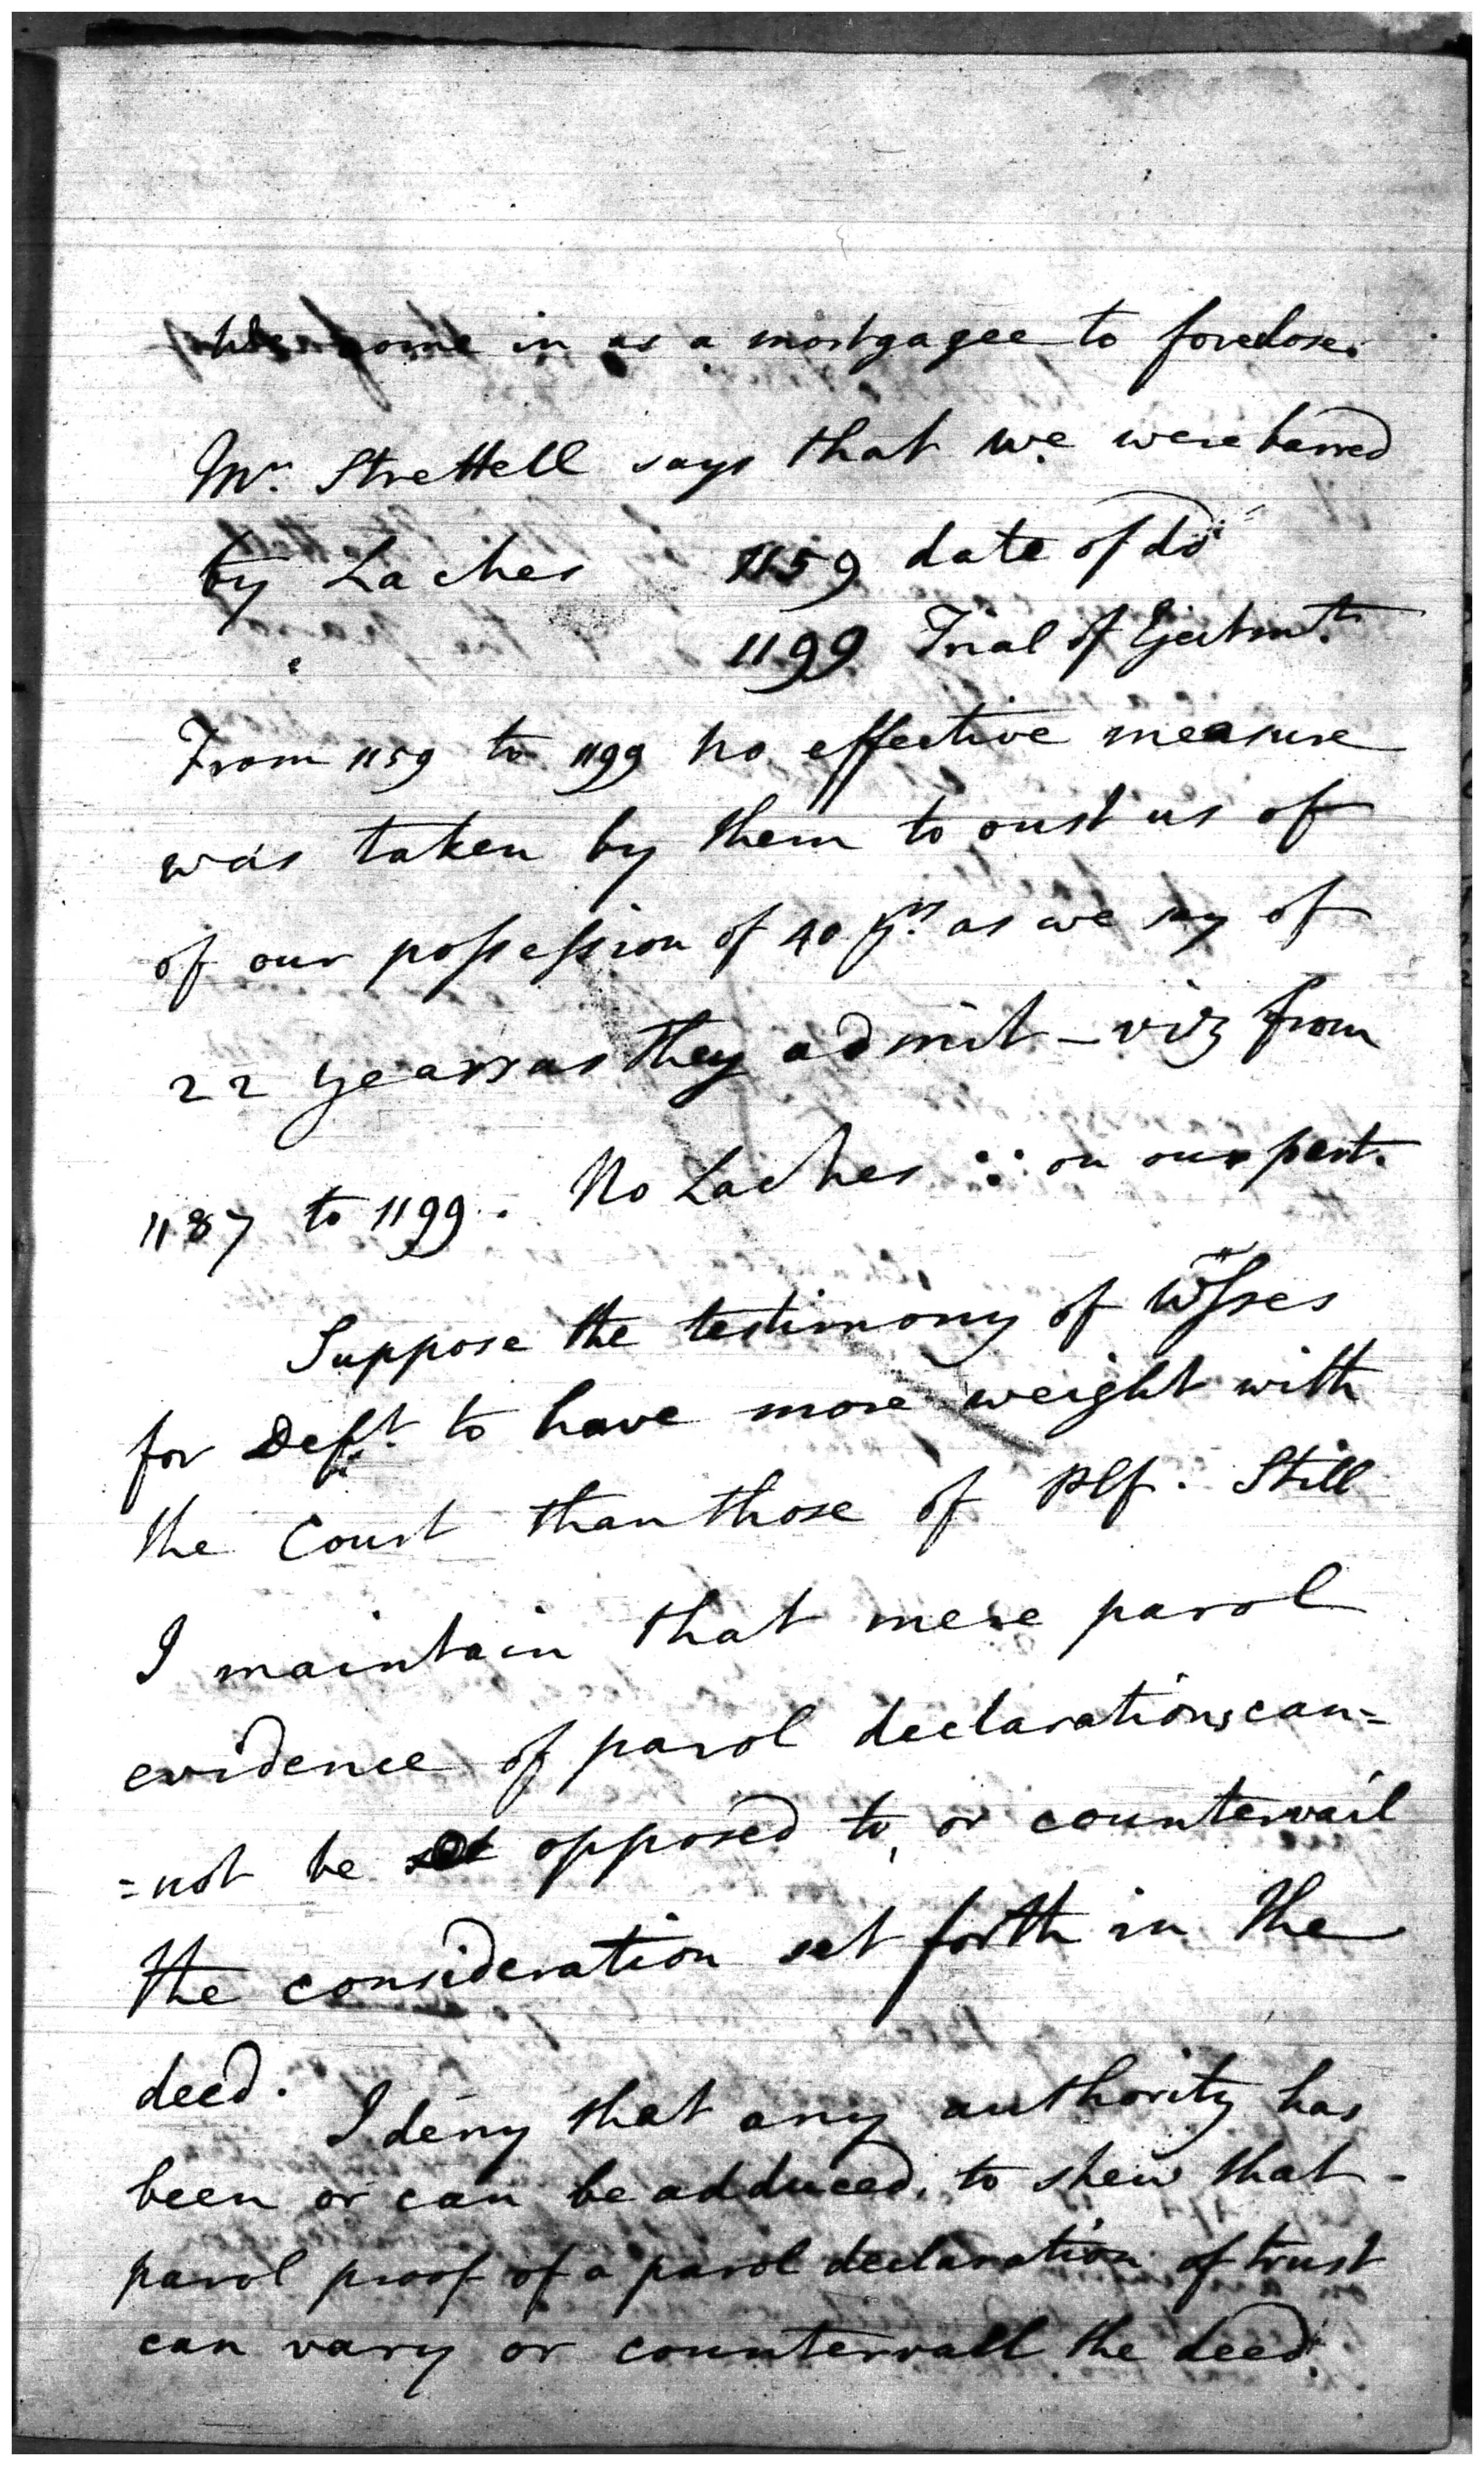 We come in as a mortgagee to foreclose.
Mr. Strettell says that we were barred
by Laches 1159 date of do
1199 Trial of Ejectmt.
From 1159 to 1199 no effective measure
was taken by them to oust us of
of our possession of 40 yrs. as we say of
22 years as they admit - viz from
1187 to 1199. No Laches ∵ on our part.
Suppose the testimony of Wsses
for Deft. to have more weight with
the Court than those of Plf. Still
I maintain that mere parol
evidence of parol declarations can=
=not be opposed to, or countervail
the consideration set forth in the
deed. I deny that any authority has
been or can be adduced, to shew that -
parol proof of a parol declaration of trust
can vary or countervail the deed.